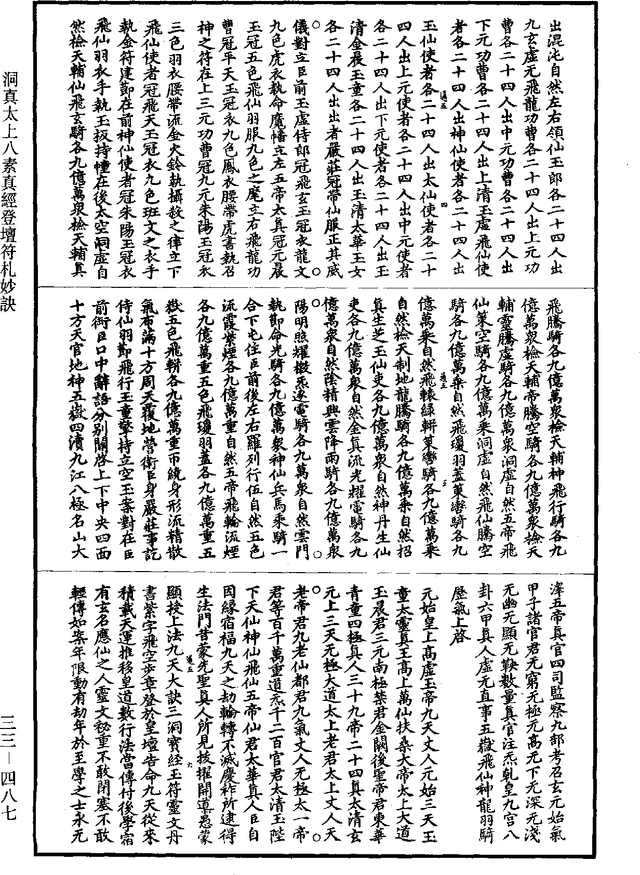 出混沌自然左右領仙玉郎各二十四人出
九玄虛无飛龍功曹各二十四人出上元功
曹各二十四人出中元功曹各二十四人出
下元功曹各二十四人出上清玉虛飛仙使
者各二十四人出神仙使者各二十四人出
玉仙使者各二十四人出太仙使者各二十
四人出上元使者各二十四人出中元使者
各二十四人出下元使者各二十四人出玉
清金晨玉童各二十四人出玉清太華玉女
各二十四人出出者嚴莊冠帶仙服正其威
儀對立臣前玉虛侍郎冠飛玄玉冠衣龍文
九色虎衣執命魔幡立左五帝太真冠元晨
玉冠五色飛仙羽服九色之麾立右飛龍功
曹冠平天玉冠衣九色鳳衣腰帶虎書執召
神之符在上三元功曹冠九元朱陽玉冠衣
三色羽衣腰帶流金火鈴執攝殺之律立下
飛仙使者冠飛天玉冠衣九色班文之衣手
執金符建節在前神仙使者冠朱陽玉冠衣
飛仙羽衣手執玉板持幢在後太空洞虛自
然檢天輔仙飛玄騎各九億萬衆檢天輔真
飛騰騎各九億萬衆檢天輔神飛行騎各九
億萬衆檢天輔帝騰空騎各九億萬衆檢天
輔靈騰虛騎各九億萬衆洞虛自然五帝飛
仙策空騎各九億萬乘洞虛自然飛仙騰空
騎各九億萬乘自然飛瓊羽蓋策轡騎各九
億萬乘自然飛轅綠軿策轡騎各九億萬乘
自然檢天制地龍騰騎各九億萬乘自然招
真生芝玉仙吏各九億萬衆自然神丹生仙
吏各九億萬衆自然金真流光耀電騎各九
億萬衆自然陰精興雲降雨騎各九億萬衆
陽明照耀檄炁逐電騎各九萬衆自然雲門
執節命光騎各九億萬衆神仙兵馬乘騎一
合下屯住臣前後左右羅列行伍自然五色
流霞紫煙各九億萬重自然五帝飛輪流煙
各九億萬重五色飛瓊羽蓋各九億萬重五
嶽五色飛軿各九億萬重帀繞身形流精散
氣布滿十方周天覆地營衛臣身嚴莊事訖
侍仙羽節飛行玉童擎持立空玉案對在臣
前銜臣口中辭語分別關啓上下中央四面
十方天官地神五嶽四瀆九江八極名山大
澤五帝真官四司監察九部考召玄元始氣
甲子諸官君无窮无極元高无下无深无淺
无幽无顯无鞅數量真官注炁乾皇九宮八
卦六甲真人虛无直事五嶽飛仙神龍羽騎
歷氣上啓
元始皇上高虛玉帝九天丈人元始三天玉
童太靈真王高上萬仙扶桑大帝太上大道
玉晨君三元南極禁君金闕後聖帝君東華
青童四極真人三十九帝二十四真太清玄
元上三天无極大道太上老君太上丈人天
老帝君九老仙都君九氣丈人无極太一帝
君等百千萬重道炁千二百官君太清玉陛
下天仙神仙飛仙五帝仙君太華真人臣自
因緣宿福九天之劫輪轉不滅慶祚所逮得
生法門昔蒙先聖真人所見拔擢開導愚蒙
顯授上法九天大訣三洞寶經玉符靈文丹
書紫字飛空步章登於皇壇告命九天從來
積載天運推移皇道數行法當傳付後學霜
有玄名應仙之人靈文祕重不敢閉塞不敢
輕傳如案年限動有劫年於至學之士永元
洞真太上八素真經登壇符札妙訣
三三—四八七